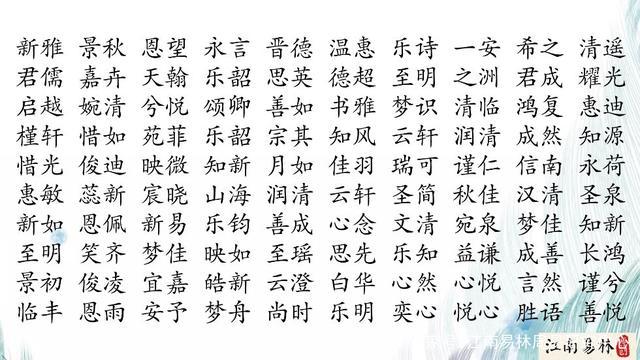 新雅 景秋 恩望 永言 晋德 温惠 乐诗 一安 希之 清遥
君儒 嘉卉 天翰 乐韶 思英 德超 至明 之洲 君成 耀光
启越 婉清 兮悦 颂卿 善如 书雅 梦识 清临 鸿复 惠迪
槿轩 惜如 苑菲 乐韶 宗其 知风 云轩 润清 成然 知源
惜光 俊迪 映微 知新 月如 佳羽 瑞可 谨仁 信南 永荷
惠敏 蕊新 宸晓 山海 润清 云轩 圣简 秋佳 汉清 圣泉
新如 恩佩 新易 乐钧 善成 心念 文清 宛泉 梦佳 知新
至明 笑齐 梦佳 映如 至瑶 思先 乐知 益谦 成善 长鸿
景初 俊凌 宜嘉 皓新 云澄 白华 心然 心悦 言然 谨兮
临丰 恩雨 安予 梦舟 尚时 乐明 奕心 悦心 胜语 善悦
江南易林